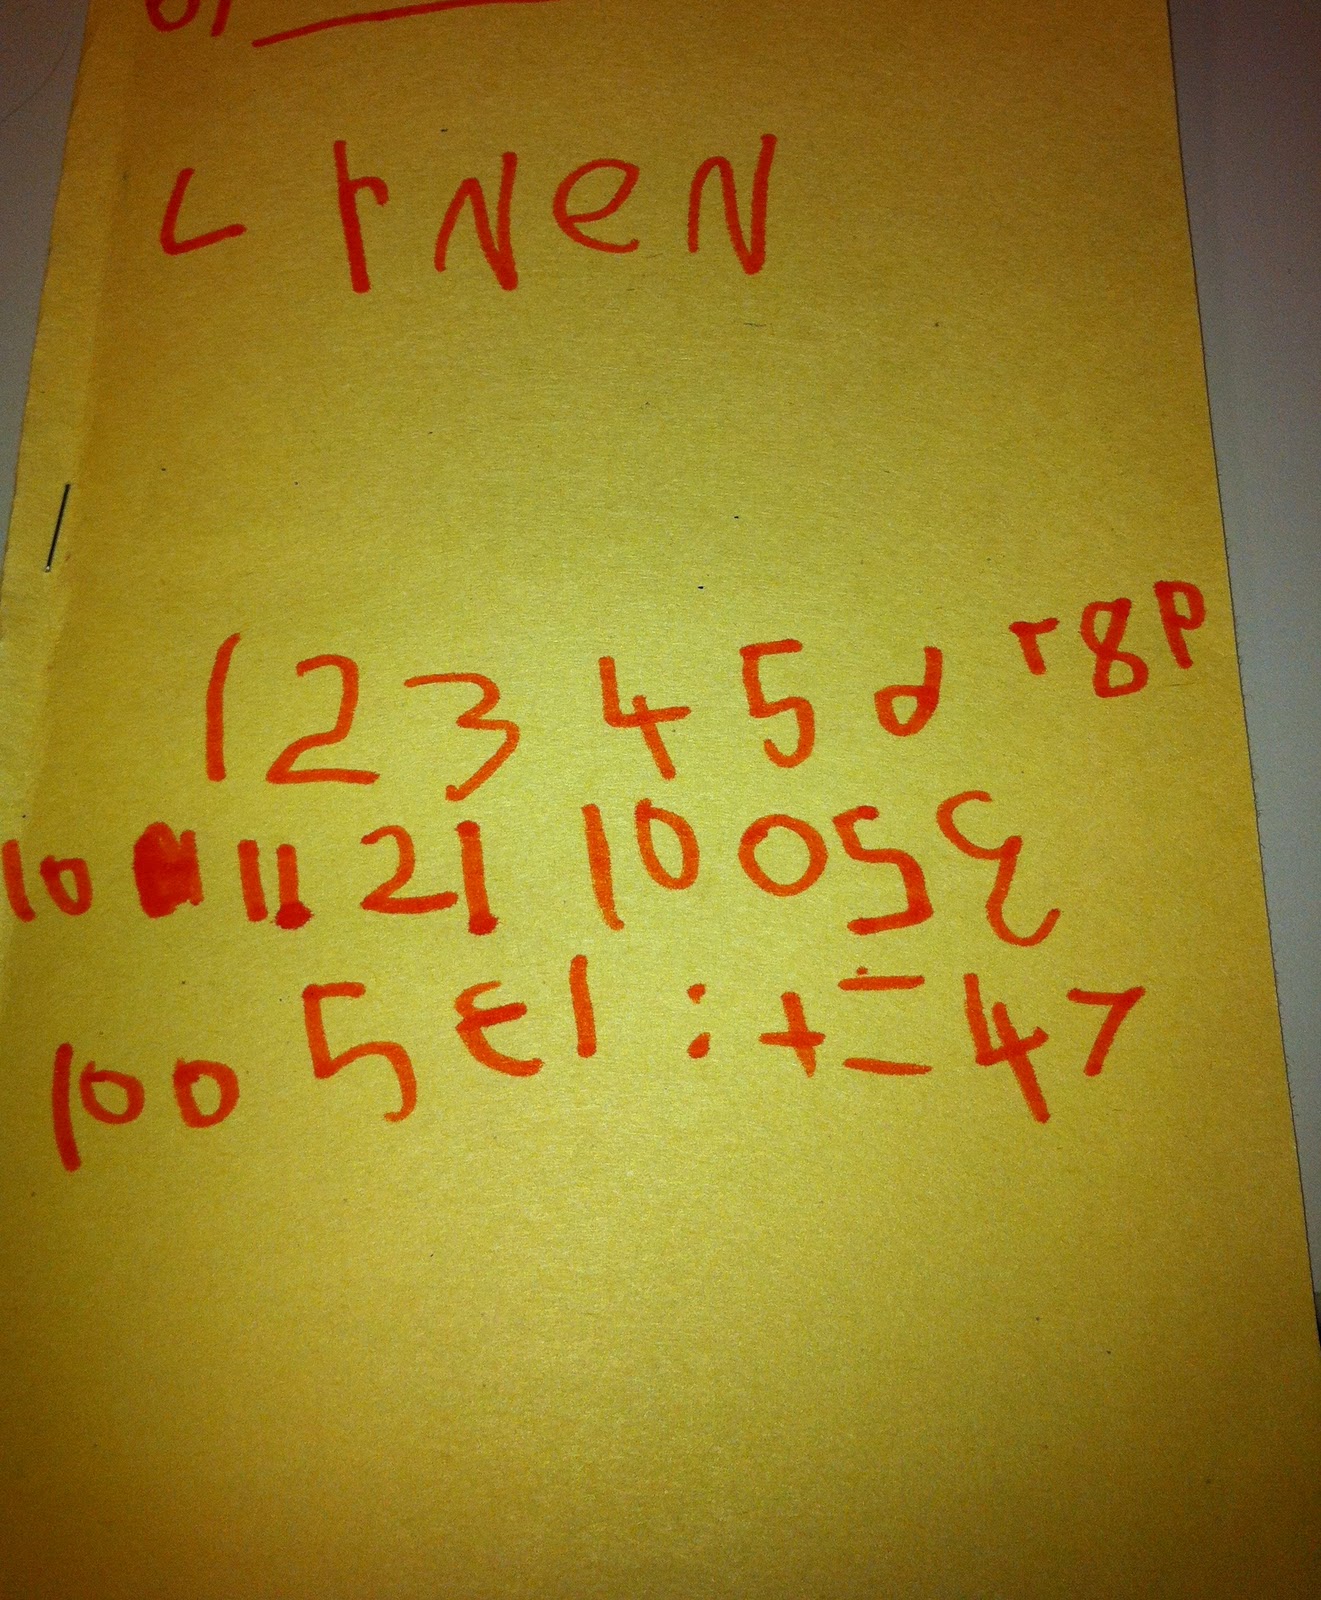 L r N e N
1 2 3 4 5 6 7 8 9
10 11 21 10 0 5 3
100 5 3 1 : + = 4 7